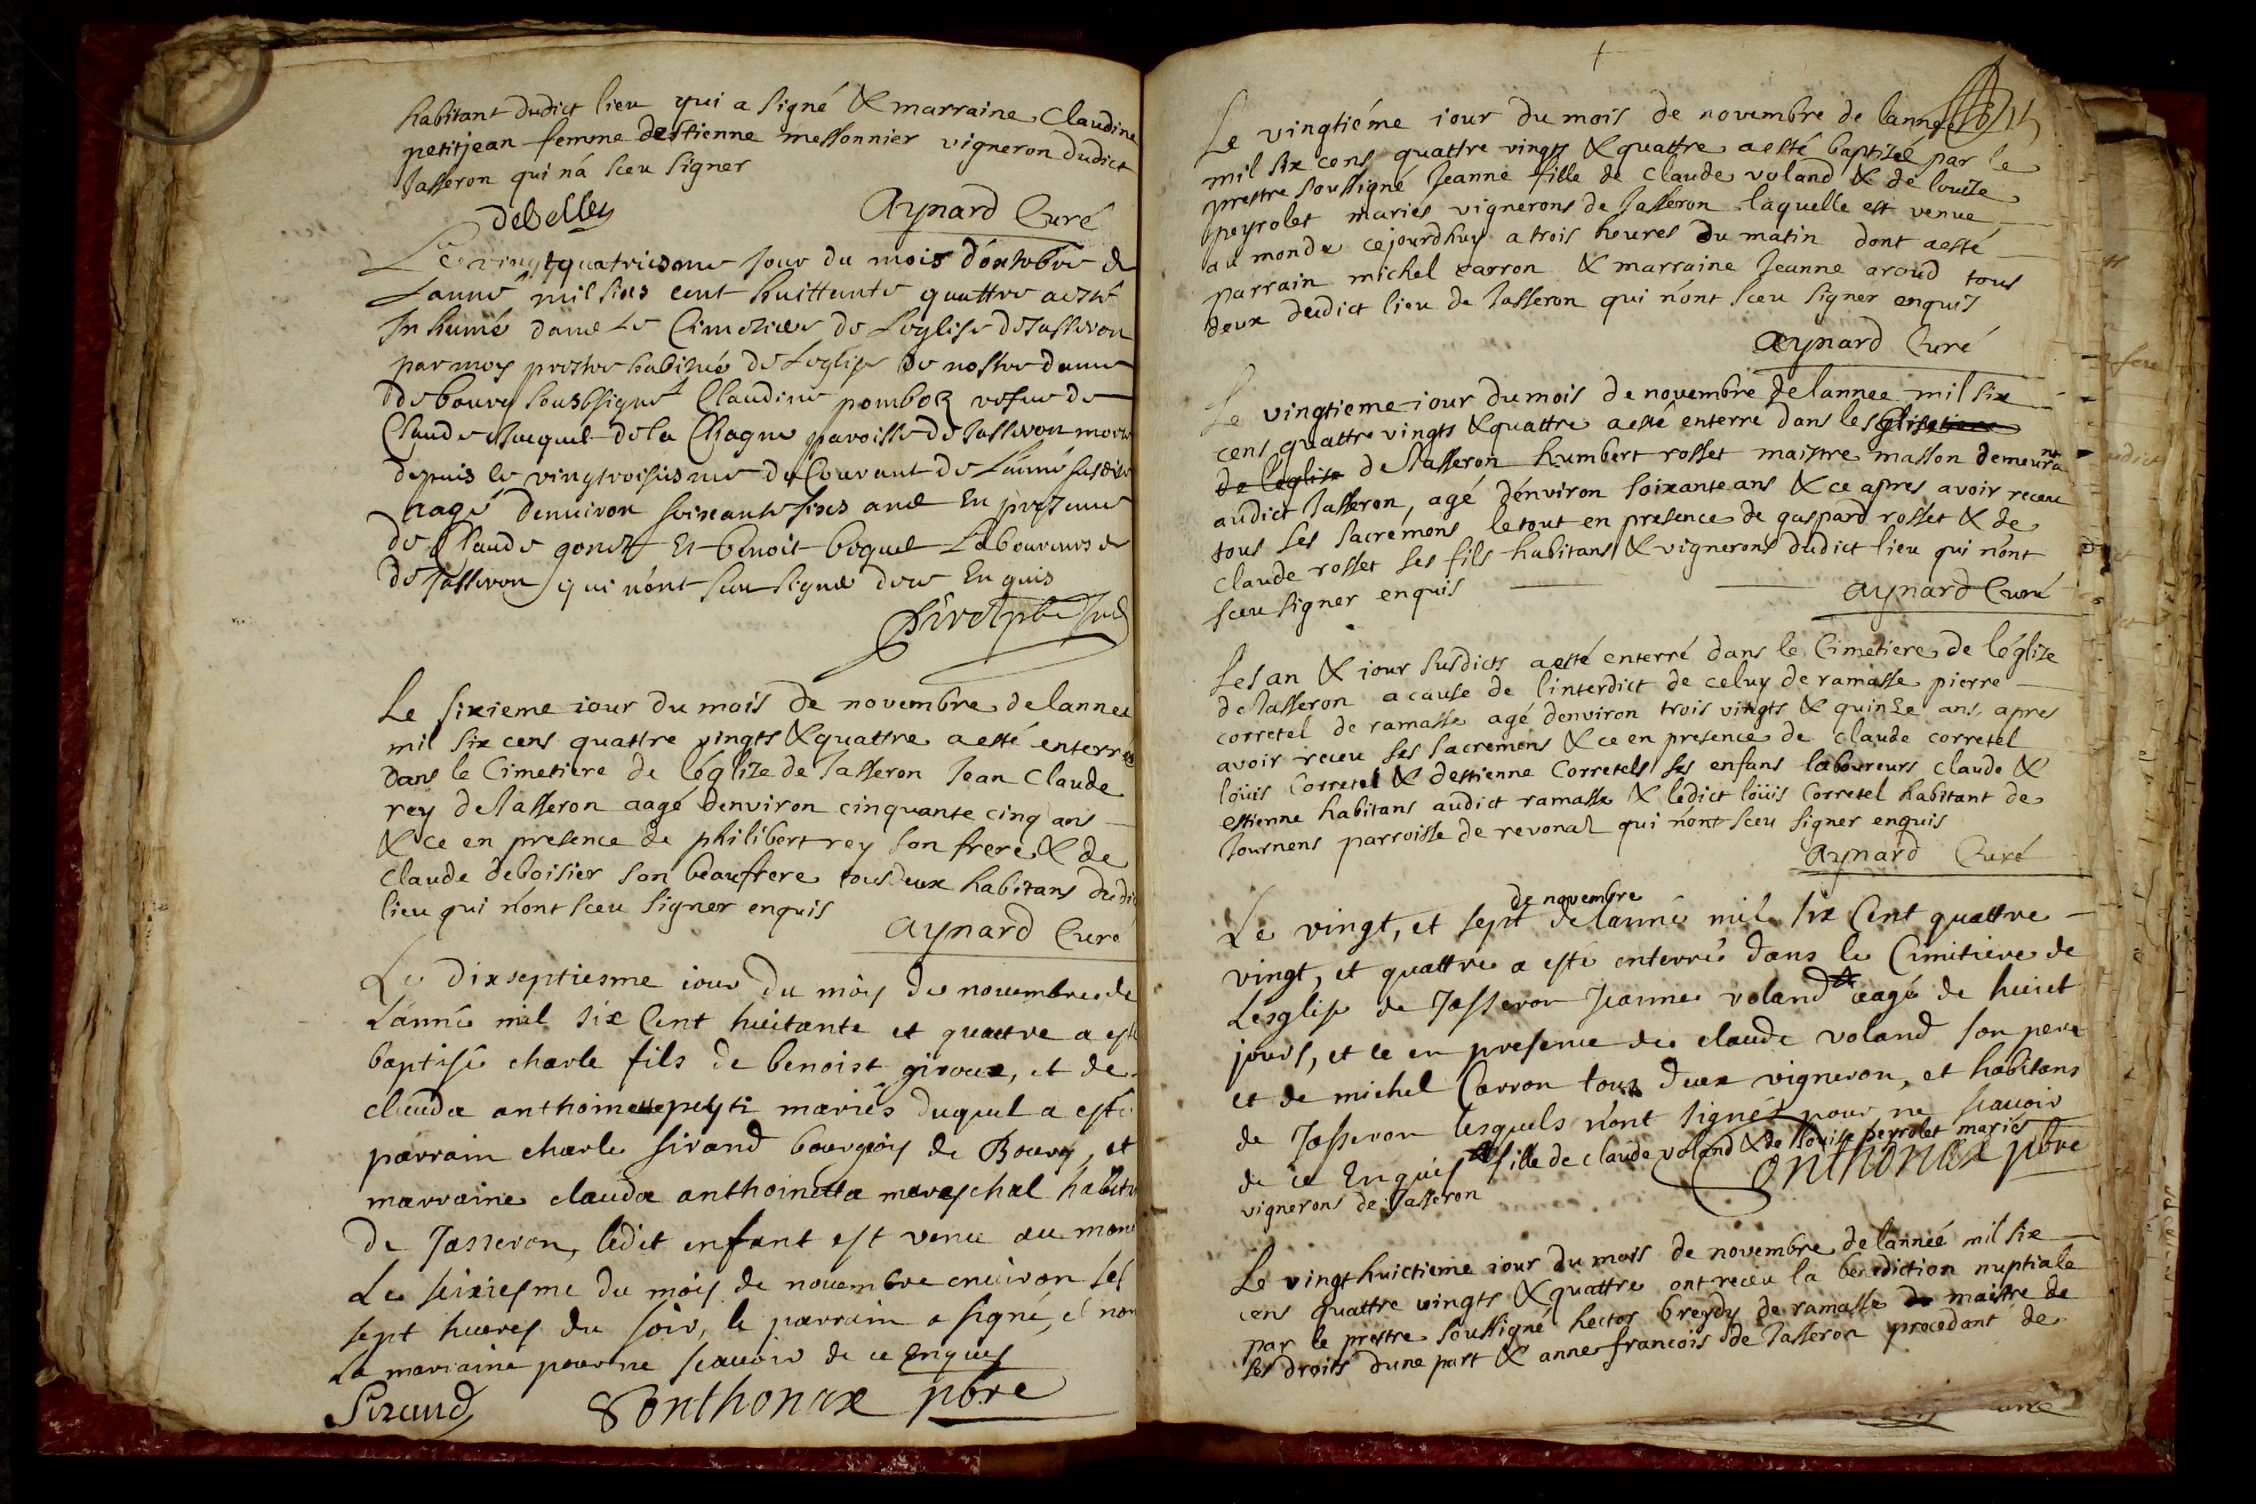 habitant dudict lieu qui a signé & marraine Claudine
petitjean femme destienne messonnier vigneron dudict
Jasseron qui n'a sceu signer
debelley Aynard Curé
Le vingtquatriesme jour du mois d'octobre de
Lanne mil sixs cent huittante quattre a esté
Inhumé dans Le Cimetiere de Leglise de Jasseron
par moy prestre habitué de Leglise de nostre dame
de bourg soubsigné Claudine vefve de
Claude Jacquet de la Chagne paroisse de Jasseron morte
depuis le vingtroisiesme du Courant de L'année susdite
aagé denuiron soixante sixs ans En presence
de Claude gonet Et benoit boquet Laboureurs
de Jasseron qui n'ont sceu signer de ce Enquis
Le sixieme iour du mois de novembre de lannee
mil six cens quattre vingts & quattre a esté enterré
dans le Cimetiere de léglize de Jasseron Jean Claude
rey de Jasseron aagé denviron cinquante cinq ans
& ce en presence de philibert rey son frere & de
Claude deboisier son beaufrere tous deux habitans dudi
lieu qui n'ont sceu signer enquis
Aynard Curé
Le dixseptiesme iour du moys de nouembre de
L'année mil six Cent huitante et quattre a esté
baptisé charle fils de benoist giroux, et de
clauda anthoinette mariés duquel a esté
parrain charle sirand bourgois de Bourg, et
marraine clauda anthoinetta mareschal habita
de Jasseron, ledit enfant est venu au mon
Le seiziesme du moys de nouembre enuiron les
sept heures du soir, le parrain a signé, et non
La marraine pour ne scauoir de ce Enquis
Sirand Gonthonax pbre
Le vingtiéme iour du mois de novembre de lannee
mil six cens quattre vingts & quattre a esté baptizée par le
prestre soussigné Jeanne fille de Claude voland & de louize
peyrolet mariés vignerons de Jasseron laquelle est venue
au monde cejourdhuy a trois heures du matin dont a esté
parrain michel carron & marraine Jeanne aroud tous
deux dudict lieu de Jasseron qui n'ont sceu signer enquis
Aynard Curé
Le vingtieme iour du mois de novembre de lannee mil six
cens quattre vingts & quattre a esté enterré dans leglise
de leglise de Jasseron humbert rosset maistre masson demeurant
audict Jasseron, agé denviron soixante ans & ce apres avoir receu
tous ses sacremens le tout en presence de gaspard rosset & de
claude rosset ses fils habitans & vignerons dudict lieu qui n'ont
sceu signer enquis
Aynard Curé
Les an & iour susdicts a esté enterré dans le Cimetiere de léglize
de Jasseron a cause de l'interdict de celuy de ramasse pierre
corretel de ramasse agé denviron trois vingts & quinze ans, apres
avoir receu ses sacremens & ce en presence de claude corretel
loüis Corretel & destienne Corretels ses enfans laboureurs claude &
estienne habitans audict ramasse & ledict loüis Corretel habitant de
Journens parroisse de revonaz qui n'ont sceu signer enquis
Aynard Curé
de novembre
Le vingt, et sept de lannée mil six Cent quattre
vingt, et quattre a esté enterré dans le Cimitiere de
Lesglise de Jasseron Jeanne voland aagée de huict
jours, et ce en presence de claude voland son pere
et de michel Carron tous deux vigneron, et habitans
de Jasseron lesquels n'ont signés pour ne scauoir
de ce Enquis fille de claude voland & de louise peyrolet mariés
vignerons de Jasseron Gonthonax pbre
Le vingt huictieme iour du mois de novembre de lannéé mil six
cens quattre vingts & quattre ont receu la benediction nuptiale
par le prestre soussigné hector breydy de ramasse maistre de
ses droits dune part & anne francois de Jasseron procedant de